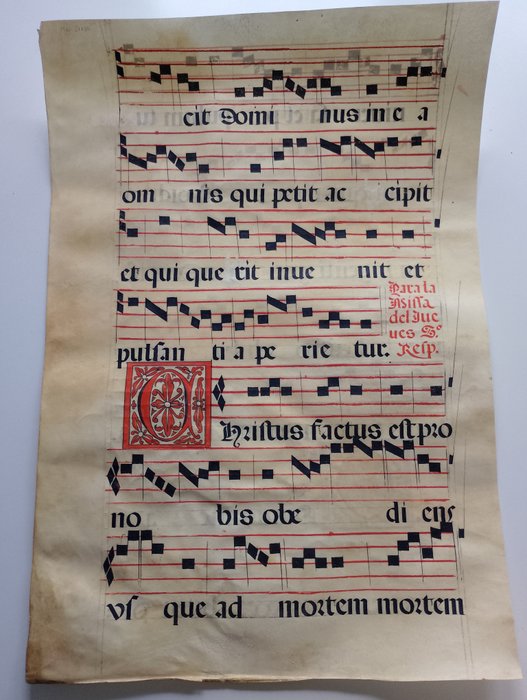 cit Domi nus in e a
om nis qui petit ac cipit
et qui que rit inue nit et
pulsan ti a pe rie tur.
Para la
Missa
del Jue
ues S.º
Resp.
CHristus factus est pro
no bis obe di ens
vs que ad mortem mortem